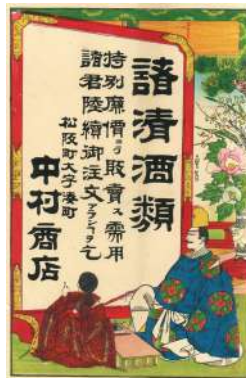 諸清酒類
特別廉價ニテ販賣ス需用
諸君陸續御注文アランヿヲ乞
松阪町大字湊町
中村商店